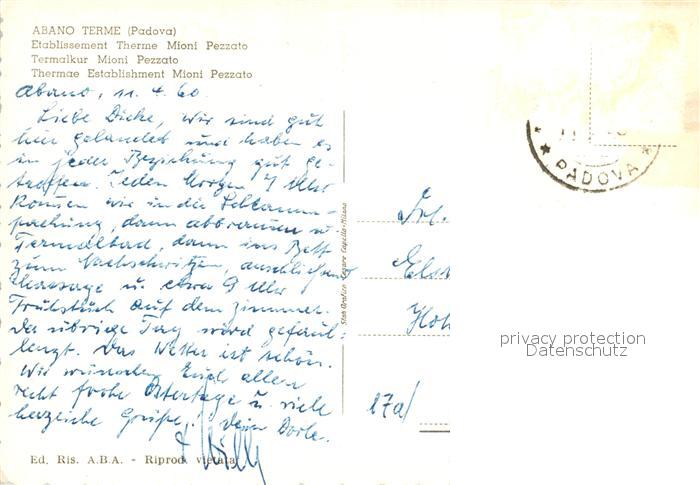 ABANO TERME (Padova)
Etablissement Therme Mioni Pezzato
Termalkur Mioni Pezzato
Thermae Establishment Mioni Pezzato
Abano, 11. 4. 60.
Liebe Dicke, wir sind gut
hier gelandet und haben es
in jeder Beziehung gut ge-
troffen. Jeden Morgen 7 Uhr
kommen wir in die Schlamm-
packung, dann abbrausen u.
Termalbad, dann ins Bett
zum Nachschwitzen, anschließend
Massage u. etwa 9 Uhr
Frühstück auf dem Zimmer.
Der übrige Tag wird gefaul-
lenzt. Das Wetter ist schön.
Wir wünschen Euch allen
recht frohe Ostertage u. viele
herzliche Grüße, Deine Dorle.
Willy
Ed. Ris. A.B.A. - Riprod. vietata
Stab. Grafico Cesare Capello-Milano
PADOVA
Frl.
Els
Hoh
17a/
privacy protection
Datenschutz